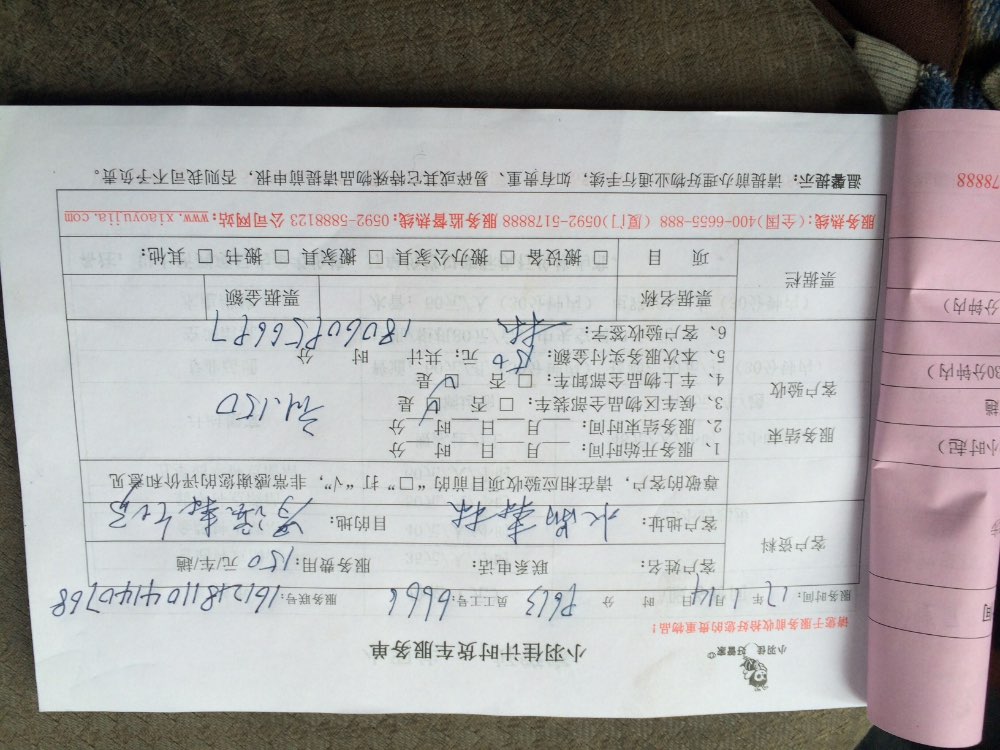 小羽佳 好管家
小羽佳计时货车服务单
请您于服务前收拾好您的贵重物品!
服务时间: 17年 1月 14日 时 分 P613 员工工号: 6666 服务账号: 1612181104140768
客户资料
客户姓名: 联系电话: 服务费用: 150 元/车/趟
客户地址: 目的地:
尊敬的客户,请在相应验收项目前的“□”打“√”,非常感谢您的评价和意见
服务结束
客户验收
1、服务开始时间: 月 日 时 分
2、服务结束时间: 月 日 时 分
3、候车区物品全部装: □ 否 是
4、车上物品全部卸车: □ 否 是
5、本次服务实付金额: 150 元; 共计 时 分
6、客户验收签字:
票据栏
票据名称 票据金额
项 目 □ 搬设备 □ 搬办公家具 □ 搬家具 □ 搬书 □ 其他:
服务热线:(全国)400-6655-888 (厦门)0592-5178888 服务监督热线: 0592-5888123 公司网站: www.xiaoyujia.com
温馨提示: 请提前办理好物业通行手续,如有贵重、易碎或其它特殊物品请提前申报,否则我司不予负责。
间
小时起)
趟
30分钟内)
分钟内)
78888